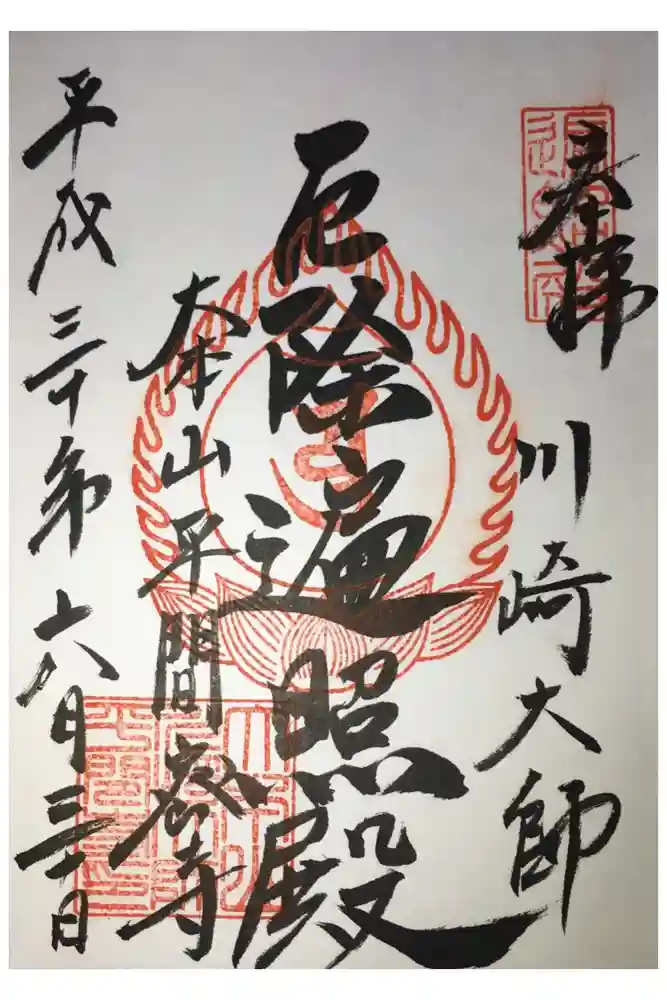 奉拝
川崎大師
厄除遍照殿
大本山平間教寺
平成三十年六月三十日